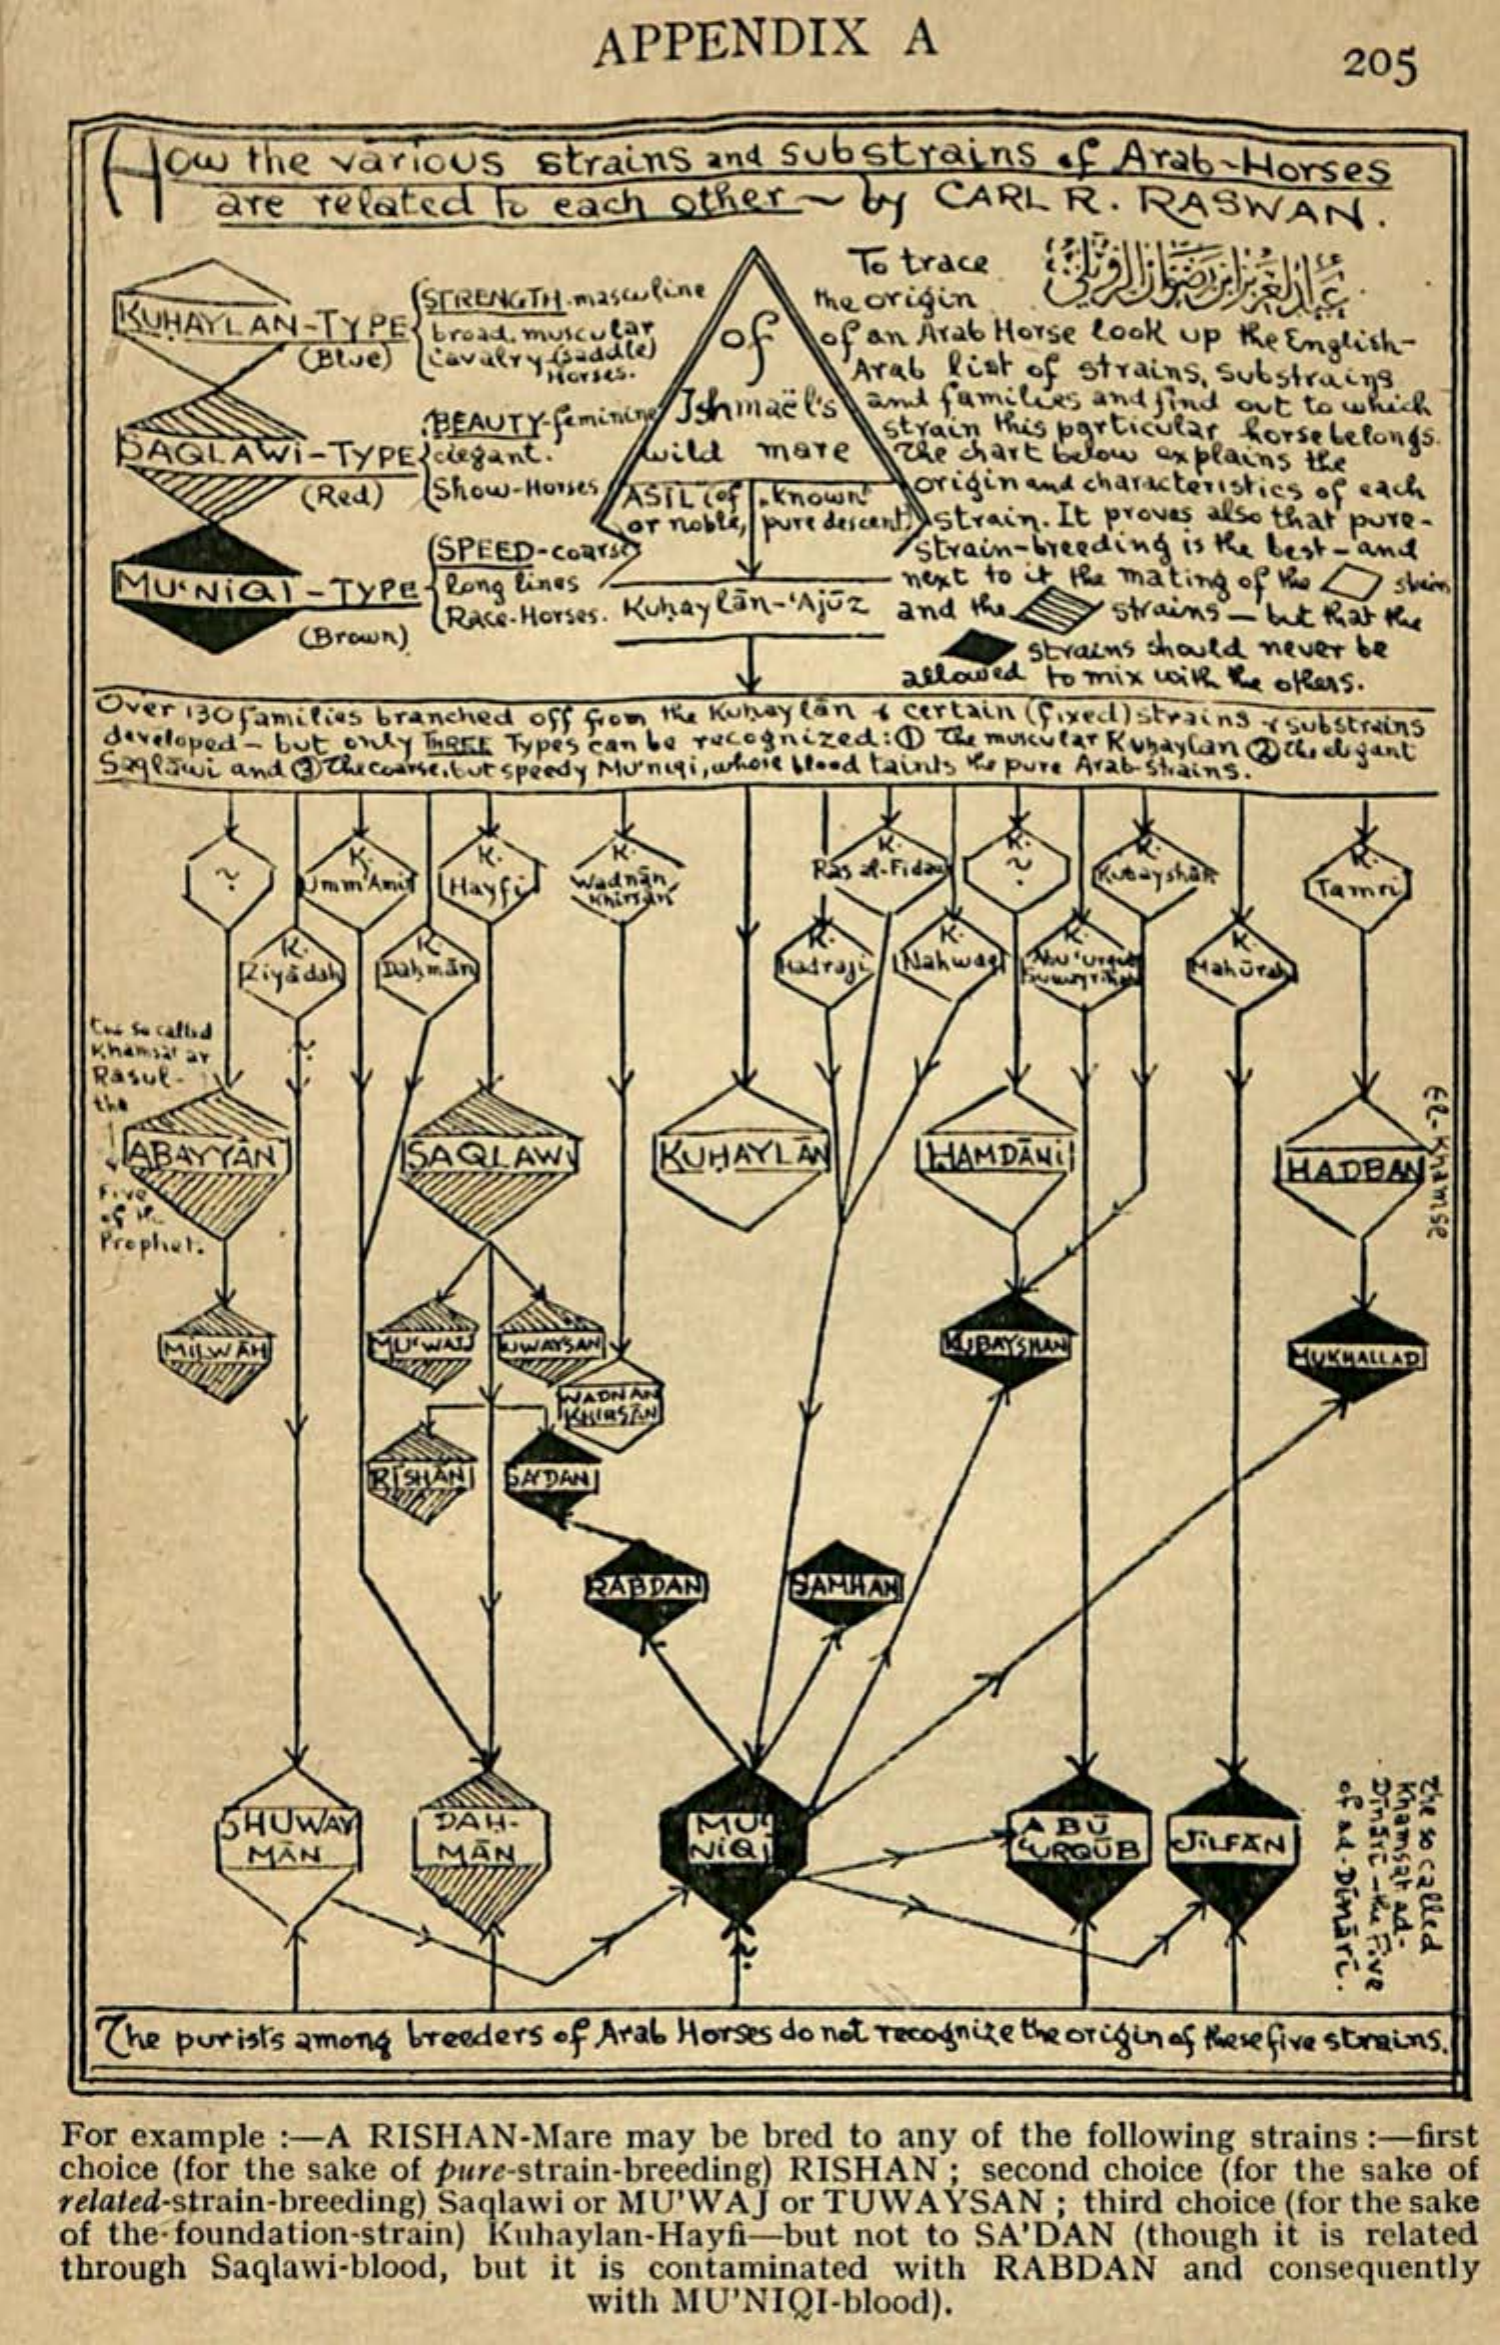 APPENDIX A
205
How the various strains and substrains of Arab-Horses
are related to each other ~ by CARL R. RASWAN.
KUHAYLAN-TYPE
(Blue)
STRENGTH-masculine
broad, muscular
Cavalry (saddle)
Horses.
SAQLAWI-TYPE
(Red)
BEAUTY-feminine
elegant.
Show-Horses
MU'NIQI-TYPE
(Brown)
SPEED-coarse
long lines
Race-Horses.
of
Ishmaël's
wild mare
ASIL (of known
or noble, pure descent)
Kuhaylān-'Ajūz
To trace
the origin
of an Arab Horse look up the English-
Arab list of strains, substrains
and families and find out to which
strain this particular horse belongs.
The chart below explains the
origin and characteristics of each
strain. It proves also that pure-
strain-breeding is the best - and
next to it the mating of the strain
and the strains - but that the
strains should never be
allowed to mix with the others.
Over 130 families branched off from the Kuhaylān & certain (fixed) strains & substrains
developed - but only THREE Types can be recognized: ① The muscular Kuhaylan ② the elegant
Saqlāwi and ③ The coarse, but speedy Mu'niqi, whose blood taints the pure Arab-strains.
?
K.
Umm'Amir
K.
Hayfi
K.
Wadnān
Khirsān
K.
Ras al-Fidawi
K.
?
K.
Kubayshān
K.
Tamri
K.
Ziyādah
K.
Dahmān
K.
Hadraji
K.
Nahwaq
K.
Abu 'Urqub
K.
Mahūrah
The so called
Khamsat ar
Rasul-
the
Five
of the
Prophet.
ABAYYĀN
SAQLAWI
KUHAYLĀN
HAMDĀNI
HADBAN
El-Khamse
MILWĀH
MU'WAJ
TUWAYSAN
WADNAN
KHIRSĀN
KUBAYSHAN
MUKHALLAD
RISHAN
SA'DAN
RABDAN
SAMHAN
SHUWAY
MĀN
DAH-
MĀN
MU'
NIQI
ABŪ
'URQŪB
JILFĀN
The so called
Khamsat ad-
Dīnārī - the Five
of ad-Dīnārī.
The purists among breeders of Arab Horses do not recognize the origin of these five strains.
For example :—A RISHAN-Mare may be bred to any of the following strains :—first
choice (for the sake of pure-strain-breeding) RISHAN ; second choice (for the sake of
related-strain-breeding) Saqlawi or MU'WAJ or TUWAYSAN ; third choice (for the sake
of the foundation-strain) Kuhaylan-Hayfi—but not to SA'DAN (though it is related
through Saqlawi-blood, but it is contaminated with RABDAN and consequently
with MU'NIQI-blood).